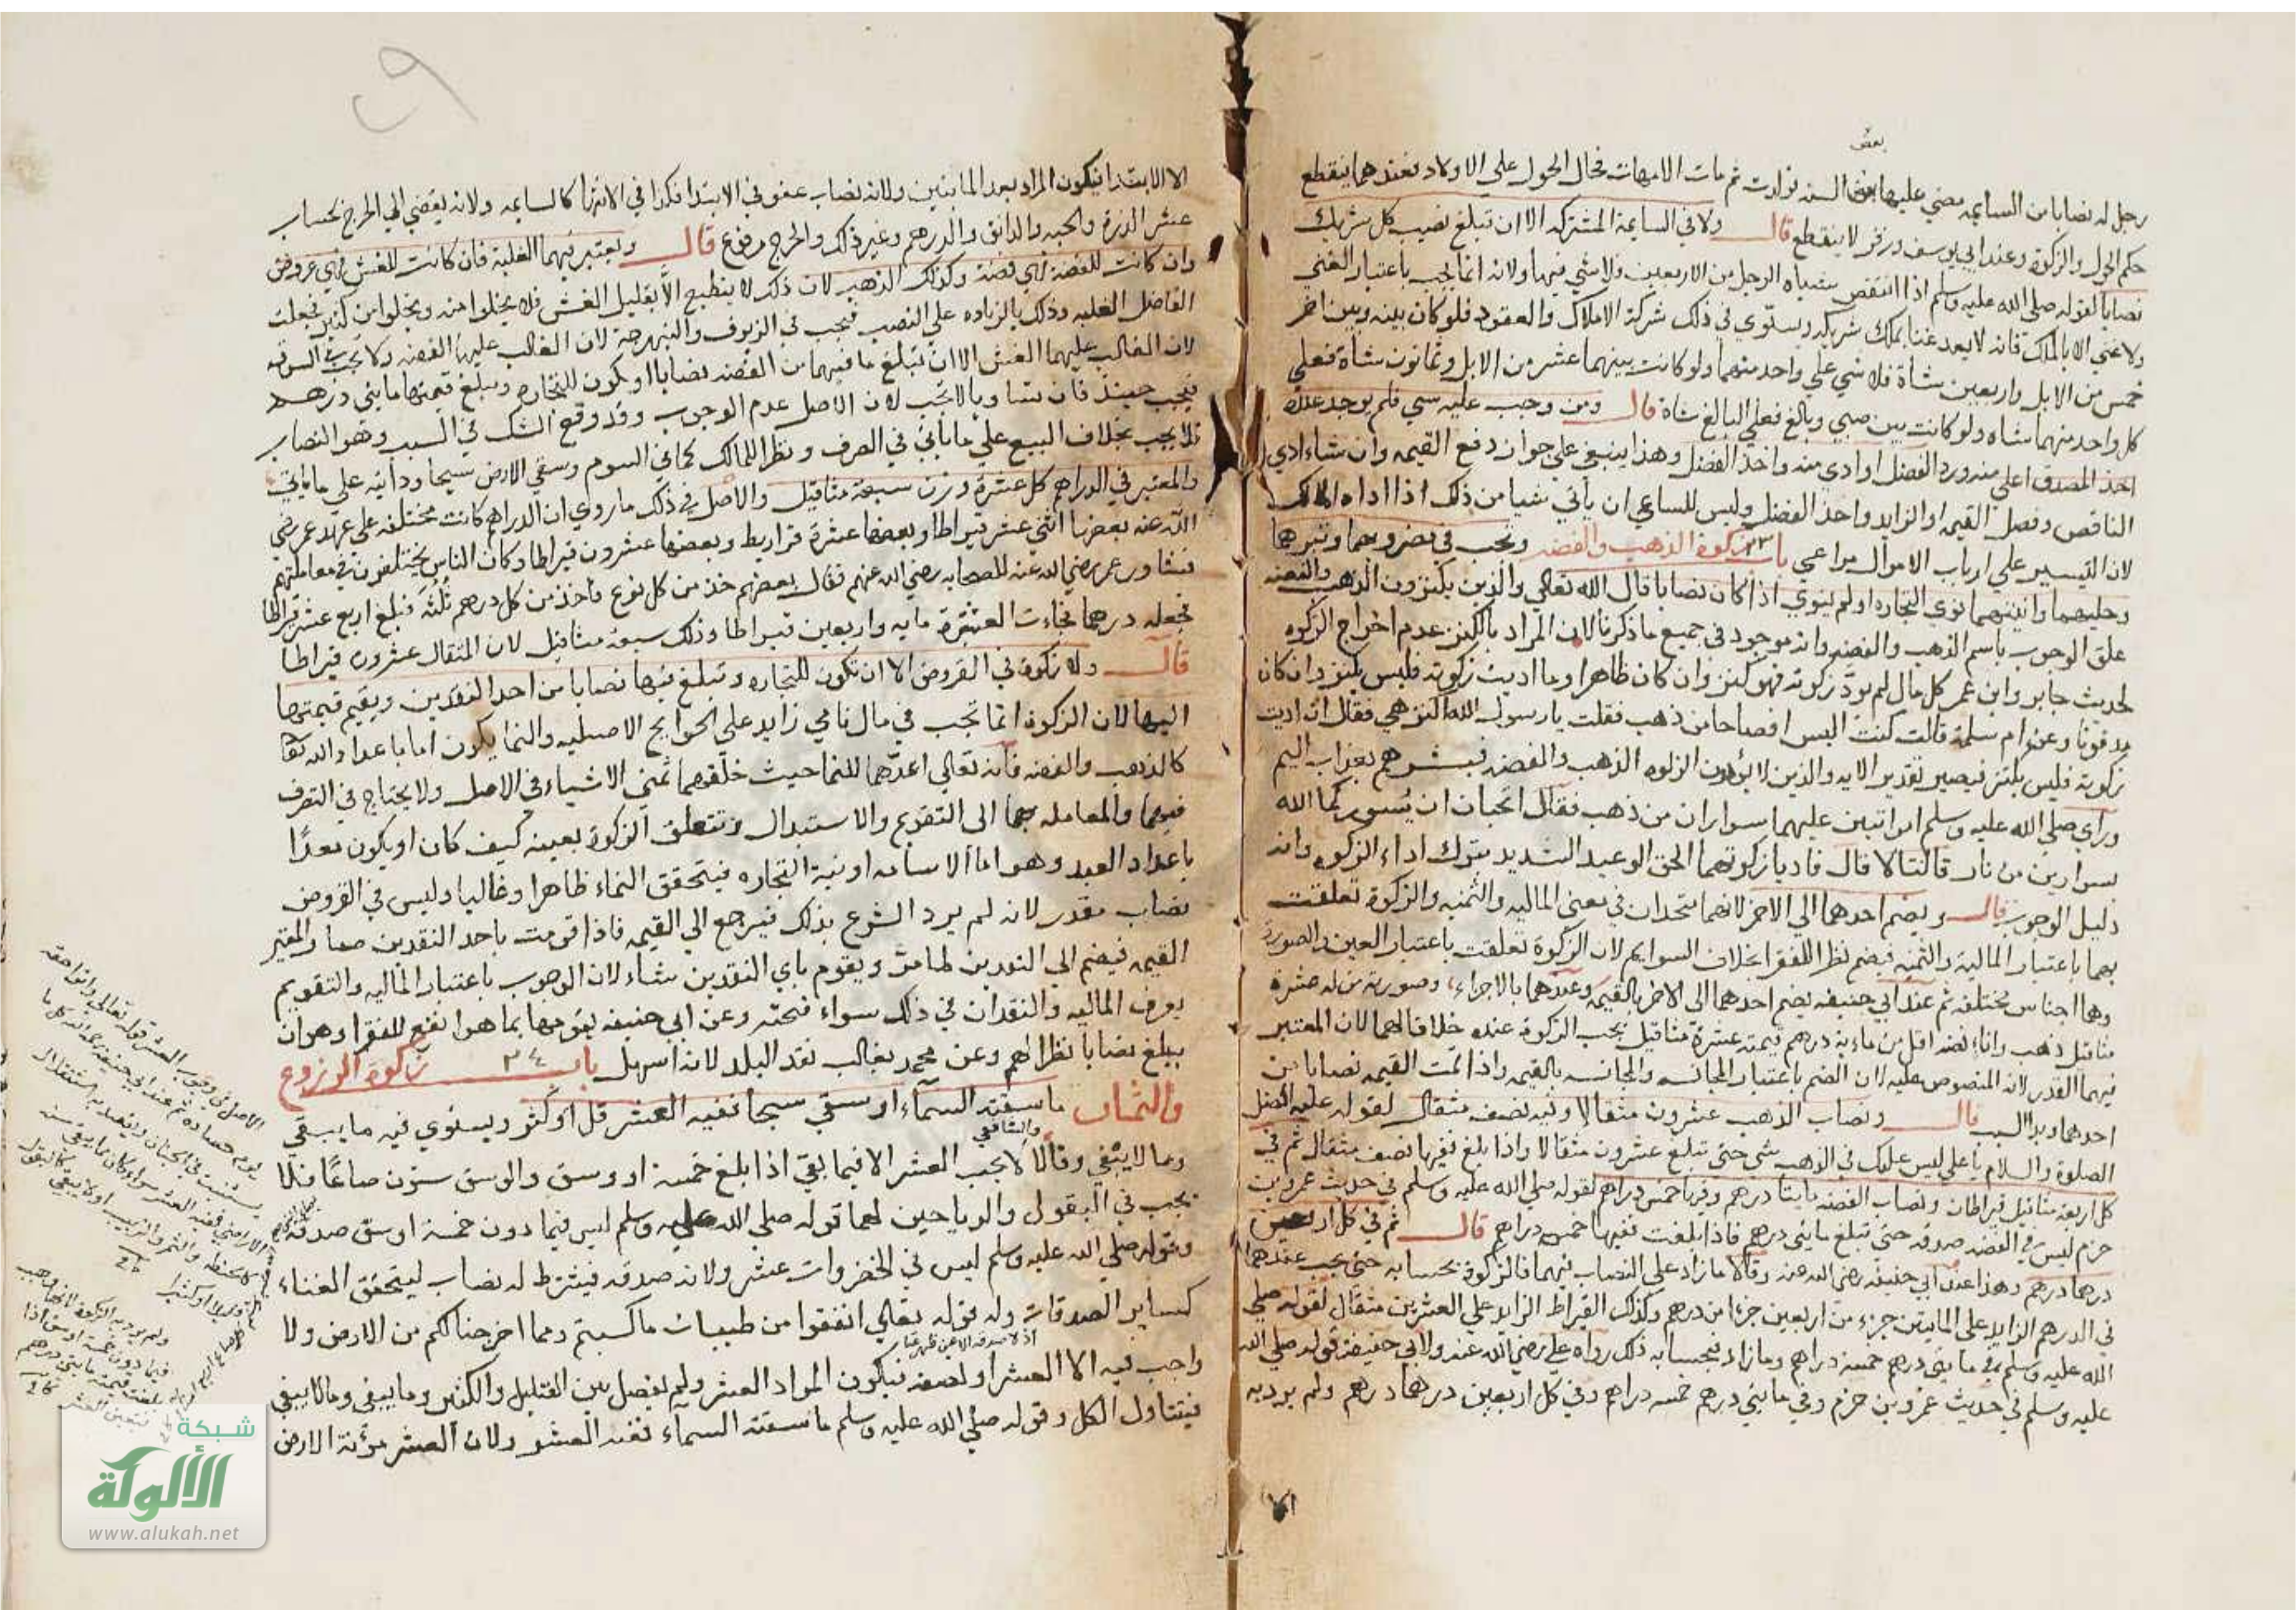 بعض
رجل له نصابا من السايمه مضي عليها بعض السنه فولدت ثم مات الامهات فحال الحول علي الاولاد فعندهما ينقطع
حكم الحول والزكوة وعند ابي يوسف وزفر لا ينقطع قال ولا في السايمة المشتركه الا ان تبلغ نصيب كل شريك
نصابا لقوله صلي الله عليه وسلم اذا انتقص شياه الرجل من الاربعين فلا شي فيها ولانه انما يجب باعتبار الغني
ولا غني الا بالملك فانه لا يعد غنيا بملك شريكه ويستوي في ذلك شركة الاملاك والعقود فلو كان بينه وبين اخر
خمس من الابل واربعين شاة فلا شي علي واحد منهما ولو كانت بينهما عشر من الابل وثمانون شاة فعلي
كل واحد منهما شاه ولو كانت بين صبي وبالغ فعلي البالغ شاة قال ومن وجب عليه سن فلم يوجد عنده
اخذ المصدق اعلي منه ورد الفضل او ادي منه واخذ الفضل وهذا ينبغي علي جواز دفع القيمه وان شاء ادي
الناقص وفضل القيمه او الزايد واخذ الفضل وليس للساعي ان يأبي شيا من ذلك اذا اداه المالك
لان التيسير علي ارباب الاموال مراعي باب زكوة الذهب والفضه وتجب في مضروبهما وتبرهما
وحليهما وانيتهما نوي التجاره او لم ينوي اذا كان نصابا قال الله تعالي والذين يكنزون الذهب والفضه
علق الوجوب باسم الذهب والفضه وانه موجود في جميع ما ذكرنا لان المراد بالكنز عدم اخراج الزكوه
لحديث جابر وابن عمر كل مال لم يود زكوته فهو كنز وان كان ظاهرا وما اديت زكوته فليس بكنز وان كان
مدفونا وعن ام سلمة قالت كنت البس اوضاحا من ذهب فقلت يا رسول الله اكنز هي فقال ان اديت
زكوته فليس بكنز فيصير تقدير الايه والذين لا يؤدون الزكوه الذهب والفضه فبشرهم بعذاب اليم
وراي صلي الله عليه وسلم امراتين عليهما سواران من ذهب فقال اتحبان ان يسوركما الله
سوارين من نار قالتا لا قال فاديا زكوتهما الحق الوعيد الشديد بترك اداء الزكوه وانه
دليل الوجوب قال ويضم احدهما الي الاخر لانهما متحدان في معني الماليه والثمنيه والزكوة تعلقت
بهما باعتبار المالية والثمنيه فيضم نظرا للفقرا بخلاف السوايم لان الزكوة تعلقت باعتبار العين والصورة
وها اجناس مختلفه ثم عند ابي حنيفه يضم احدهما الي الاخر بالقيمه وعندهما بالاجزاء وصورته من له عشرة
مثاقيل ذهب واناء فضه اقل من ماءية درهم قيمته عشرة مثاقيل تجب الزكوة عنده خلافا لهما لان المعتبر
فيهما القدر لانه المنصوص عليه لان الضم باعتبار المجانسه والمجانسه بالقيمه واذا تمت القيمه نصابا من
احدهما وجد السبب قال ونصاب الذهب عشرون مثقالا وفيه نصف مثقال لقوله عليه افضل
الصلوة والسلام يا علي ليس عليك في الذهب شي حتي تبلغ عشرون مثقالا واذا بلغ ففيها نصف مثقال ثم في
كل اربعة مثاقيل قيراطان ونصاب الفضه مايتا درهم وفيها خمس دراهم لقوله صلي الله عليه وسلم في حديث عمرو بن
حزم ليس في الفضه صدقه حتي تبلغ مايتي درهم فاذا بلغت ففيها خمس دراهم قال ثم في كل اربعين
درهما درهم وهذا عند ابي حنيفه رضي الله عنه وقالا ما زاد علي النصاب فيهما فالزكوة بحسابه حتي يجب عندهما
في الدرهم الزايد علي المايتين جزء من اربعين جزءا من درهم وكذلك القيراط الزايد علي العشرين مثقال لقوله صلي
الله عليه وسلم في مايتي درهم خمسة دراهم وما زاد فبحسابه ذلك رواه علي رضي الله عنه ولابي حنيفة قوله صلي الله
عليه وسلم في حديث عمرو بن حزم وفي مايتي درهم خمسه دراهم وفي كل اربعين درهما درهم ولم يرد به
الا الابتدا فيكون المراد بعد المايتين ولانه نصاب عفو في الابتدا فكذا في الانتها كالسايمه ولانه يفضي الي الحرج بحساب
عشر الذرة والحبه والدانق والدرهم وغير ذلك والحرج مدفوع قال ويعتبر فيهما الغلبة فان كانت للغش فهي عروض
وان كانت للفضه فهي فضة وكذلك الذهب لان ذلك لا ينطبع الا بقليل الغش فلا يخلوا منه ويخلوا من كثير فجعلت
الفاضل الغلبه وذلك بالزياده علي النصب فيجب في الزيوف والنبهرجة لان الغالب عليها الفضه ولا تجب في الستوقه
لان الغالب عليهما الغش الا ان تبلغ ما فيهما من الفضه نصابا او يكون للتجاره وتبلغ قيمتها مايتي درهم
فيجب حينئذ فان تساويا لا تجب لان الاصل عدم الوجوب وقد وقع الشك في السبب وهو النصاب
فلا يجب بخلاف البيع علي ما ياتي في الصرف ونظرا للمالك كما في السوم وسقي الارض سيحا ودانيه علي ما ياتي
والمعتبر في الدراهم كل عشرة وزن سبعة مثاقيل والاصل في ذلك ما روي ان الدراهم كانت مختلفه علي عهد عمر رضي
الله عنه بعضها اثني عشر قيراطا وبعضها عشرة قراريط وبعضها عشرون قيراطا وكان الناس يختلفون في معاملتهم
فشاور عمر رضي الله عنه للصحابه رضي الله عنهم فقال بعضهم خذ من كل نوع فاخذ من كل درهم ثلثه فبلغ اربع عشر قيراطا
فجعله درهما فجاءت العشرة مايه واربعين قيراطا وذلك سبعة مثاقيل لان المثقال عشرون قيراطا
قال ولا زكوة في العروض الا ان تكون للتجاره وتبلغ قيمتها نصابا من احد النقدين ويقيم قيمتها
اليها لان الزكوة انما تجب في مال نامي زايد علي الحوايج الاصليه والنما يكون اما باعداد الله تعا
كالذهب والفضه فانه تعالي اعدهما للنما حيث خلقهما ثمني الاشياء في الاصل ولا يحتاج في التصرف
فيهما والمعامله بهما الى التقويم والاستبدال وتتعلق الزكوة بعينه كيف كان او يكون معدا
باعداد العبد وهو اما الاسامه او نية التجاره فيتحقق النماء ظاهرا وغالبا وليس في العروض
نصاب مقدر لانه لم يرد الشرع بذلك فيرجع الي القيمه فاذا قومت باحد النقدين صما والمعتبر
القيمه فيضم الي النقدين لما مر ويقوم باي النقدين شاء لان الوجوب باعتبار الماليه والتقويم
يعرف الماليه والنقدان في ذلك سواء فيخير وعن ابي حنيفه يقومها بما هو انفع للفقرا وهو ان
يبلغ نصابا نظرا لهم وعن محمد بغالب نقد البلد لانه اسهل باب زكوة الزروع
والثمار ما سقته السمآء او سقي سيحا ففيه العشر قل او كثر ويستوي فيه ما يبقي
والشافعي
وما لا يبقي وقالا لا يجب العشر الا فيما يبقي اذا بلغ خمسة اوسق والوسق ستون صاعا فلا
يجب في البقول والرياحين لهما قوله صلي الله عليه وسلم ليس فيما دون خمسة اوسق صدقه
وقوله صلي الله عليه وسلم ليس في الخضروات عشر ولانه صدقه فيشترط له نصاب ليتحقق الغناء
كساير الصدقات وله قوله تعالي انفقوا من طيبات ما كسبتم ومما اخرجنا لكم من الارض ولا
اذ لا صدقه الا عن ظهر غنا
واجب فيه الا العشر او نصفه فيكون المراد العشر ولم يفصل بين القليل والكثير وما يبقي وما لا يبقي
فيتناول الكل وقوله صلي الله عليه وسلم ما سقته السمآء ففيه العشر ولان العشر مؤنة الارض
الاصل في وجوب العشر قوله تعالي واتوا حقه
يوم حصاده ثم عند ابي حنيفة رحمه الله كل ما
شبكة
الألوكة
www.alukah.net